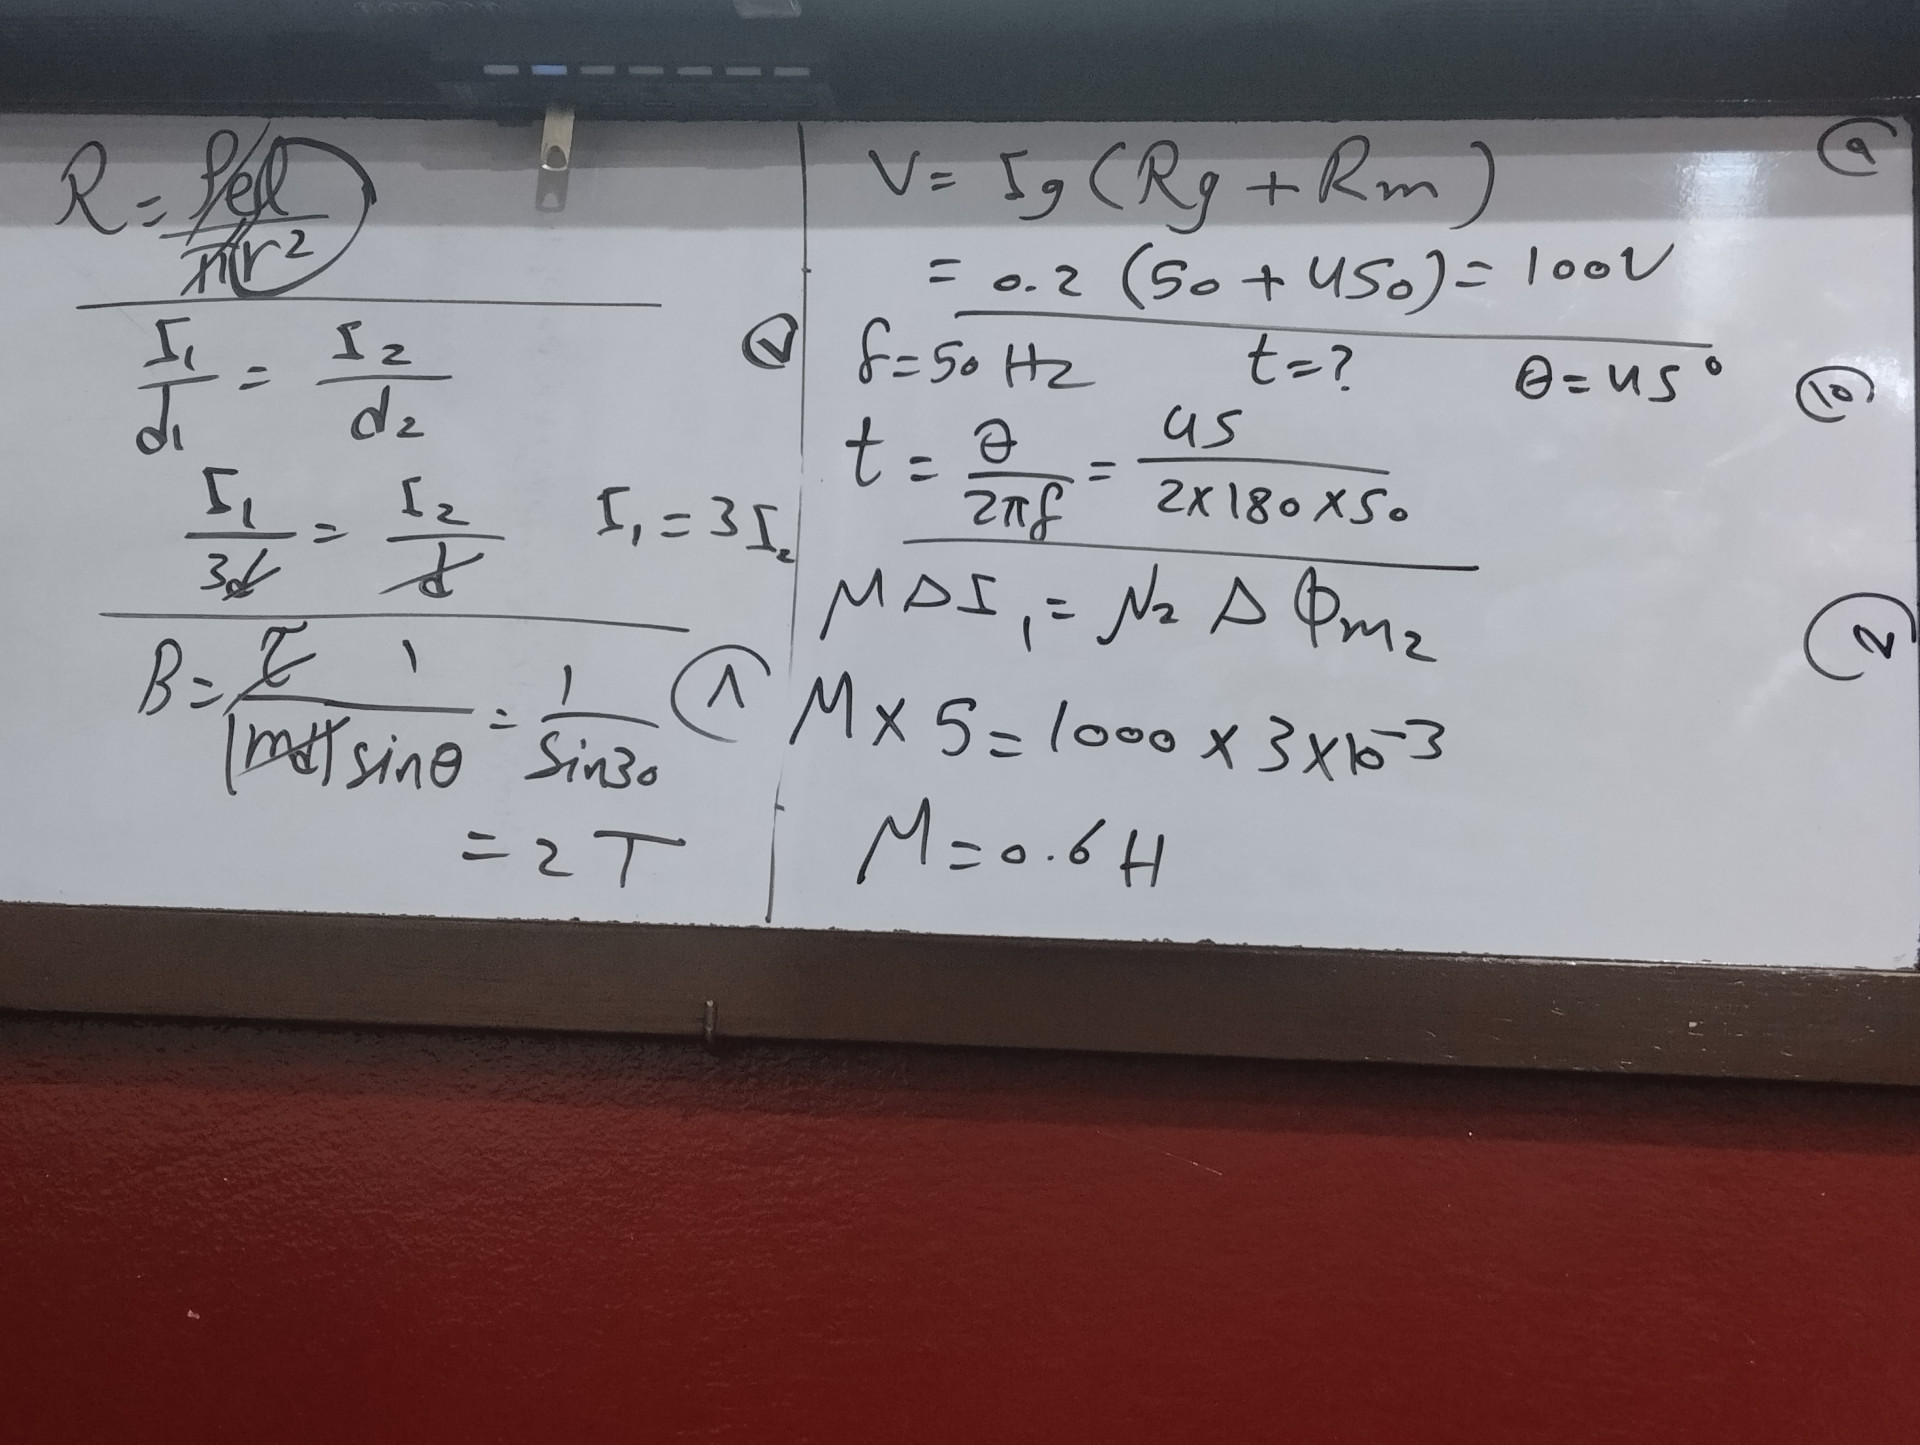 R = ρe l / π r²
I₁ / d₁ = I₂ / d₂
I₁ / 3d = I₂ / d   I₁ = 3I₂
B = τ 1 / |md| sin θ = 1 / Sin 30   ٨
= 2 T
V = Ig (Rg + Rm)   ٩
= 0.2 (50 + 450) = 100V
f = 50 Hz   t = ?   θ = 45°   10
t = θ / 2πf = 45 / 2 × 180 × 50
M Δ I₁ = N₂ Δ Φm₂
M × 5 = 1000 × 3 × 10⁻³
M = 0.6 H